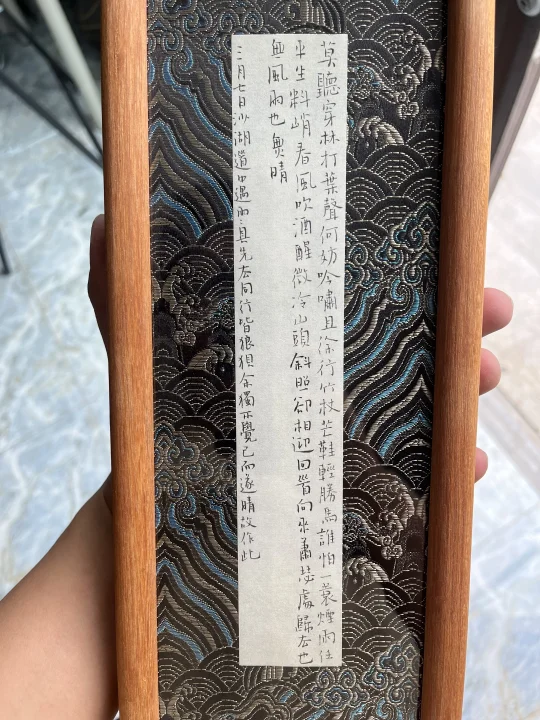 莫聽穿林打葉聲何妨吟嘯且徐行竹杖芒鞋輕勝馬誰怕一蓑煙雨任
平生料峭春風吹酒醒微冷山頭斜照卻相迎回首向來蕭瑟處歸去也
無風雨也無晴
三月七日沙湖道中遇雨〻具先去同行皆狼狽余獨不覺已而遂晴故作此